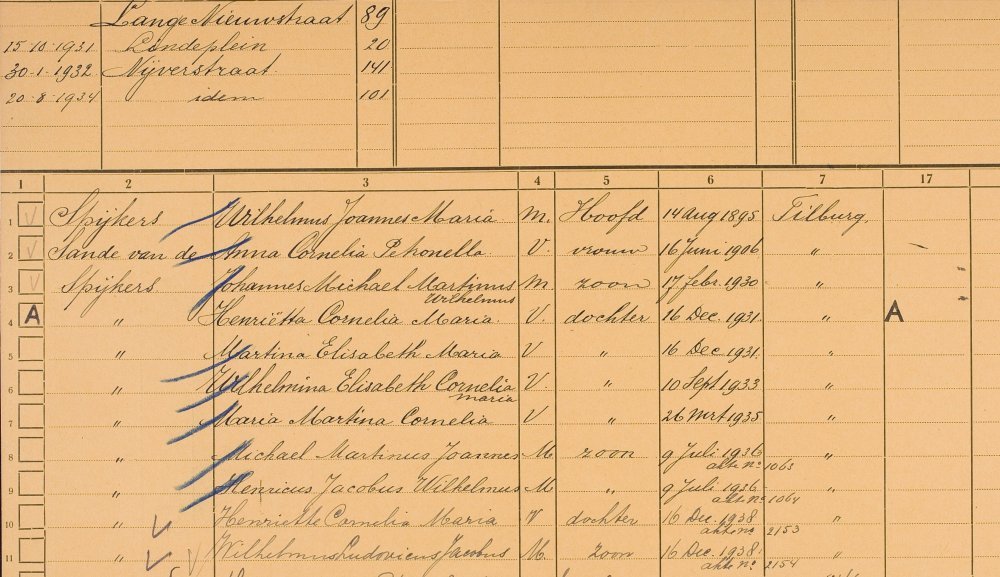 Lange Nieuwstraat 89
15-10-1931 Lindeplein 20
30-1-1932 Nijverstraat 141
20-8-1934 idem 101
1 2 3 4 5 6 7 17
1 Spijkers Wilhelmus Joannes Maria M. Hoofd 14 Aug 1895 Tilburg.
2 Sande van de Anna Cornelia Petronella V. vrouw 16 Juni 1906 "
3 Spijkers Johannes Michael Martinus M zoon 17 febr. 1930 "
Wilhelmus
4 A " Henriëtta Cornelia Maria. V. dochter 16 Dec. 1931. " A
5 " Martina Elisabeth Maria V " 16 Dec 1931. "
6 " Wilhelmina Elisabeth Cornelia V. " 10 Sept 1933 "
maria
7 " Maria Martina Cornelia V " 26 Mrt 1935 "
8 " Michael Martinus Joannes M zoon 9 Juli 1936 "
akte no 1063
9 " Henricus Jacobus Wilhelmus M " 9 Juli 1936 "
akte no 1064
10 " Henriette Cornelia Maria V dochter 16 Dec. 1938 "
akte no 2153
11 " Wilhelmus Ludovicus Jacobus M. zoon 16 Dec. 1938. "
akte no 2154